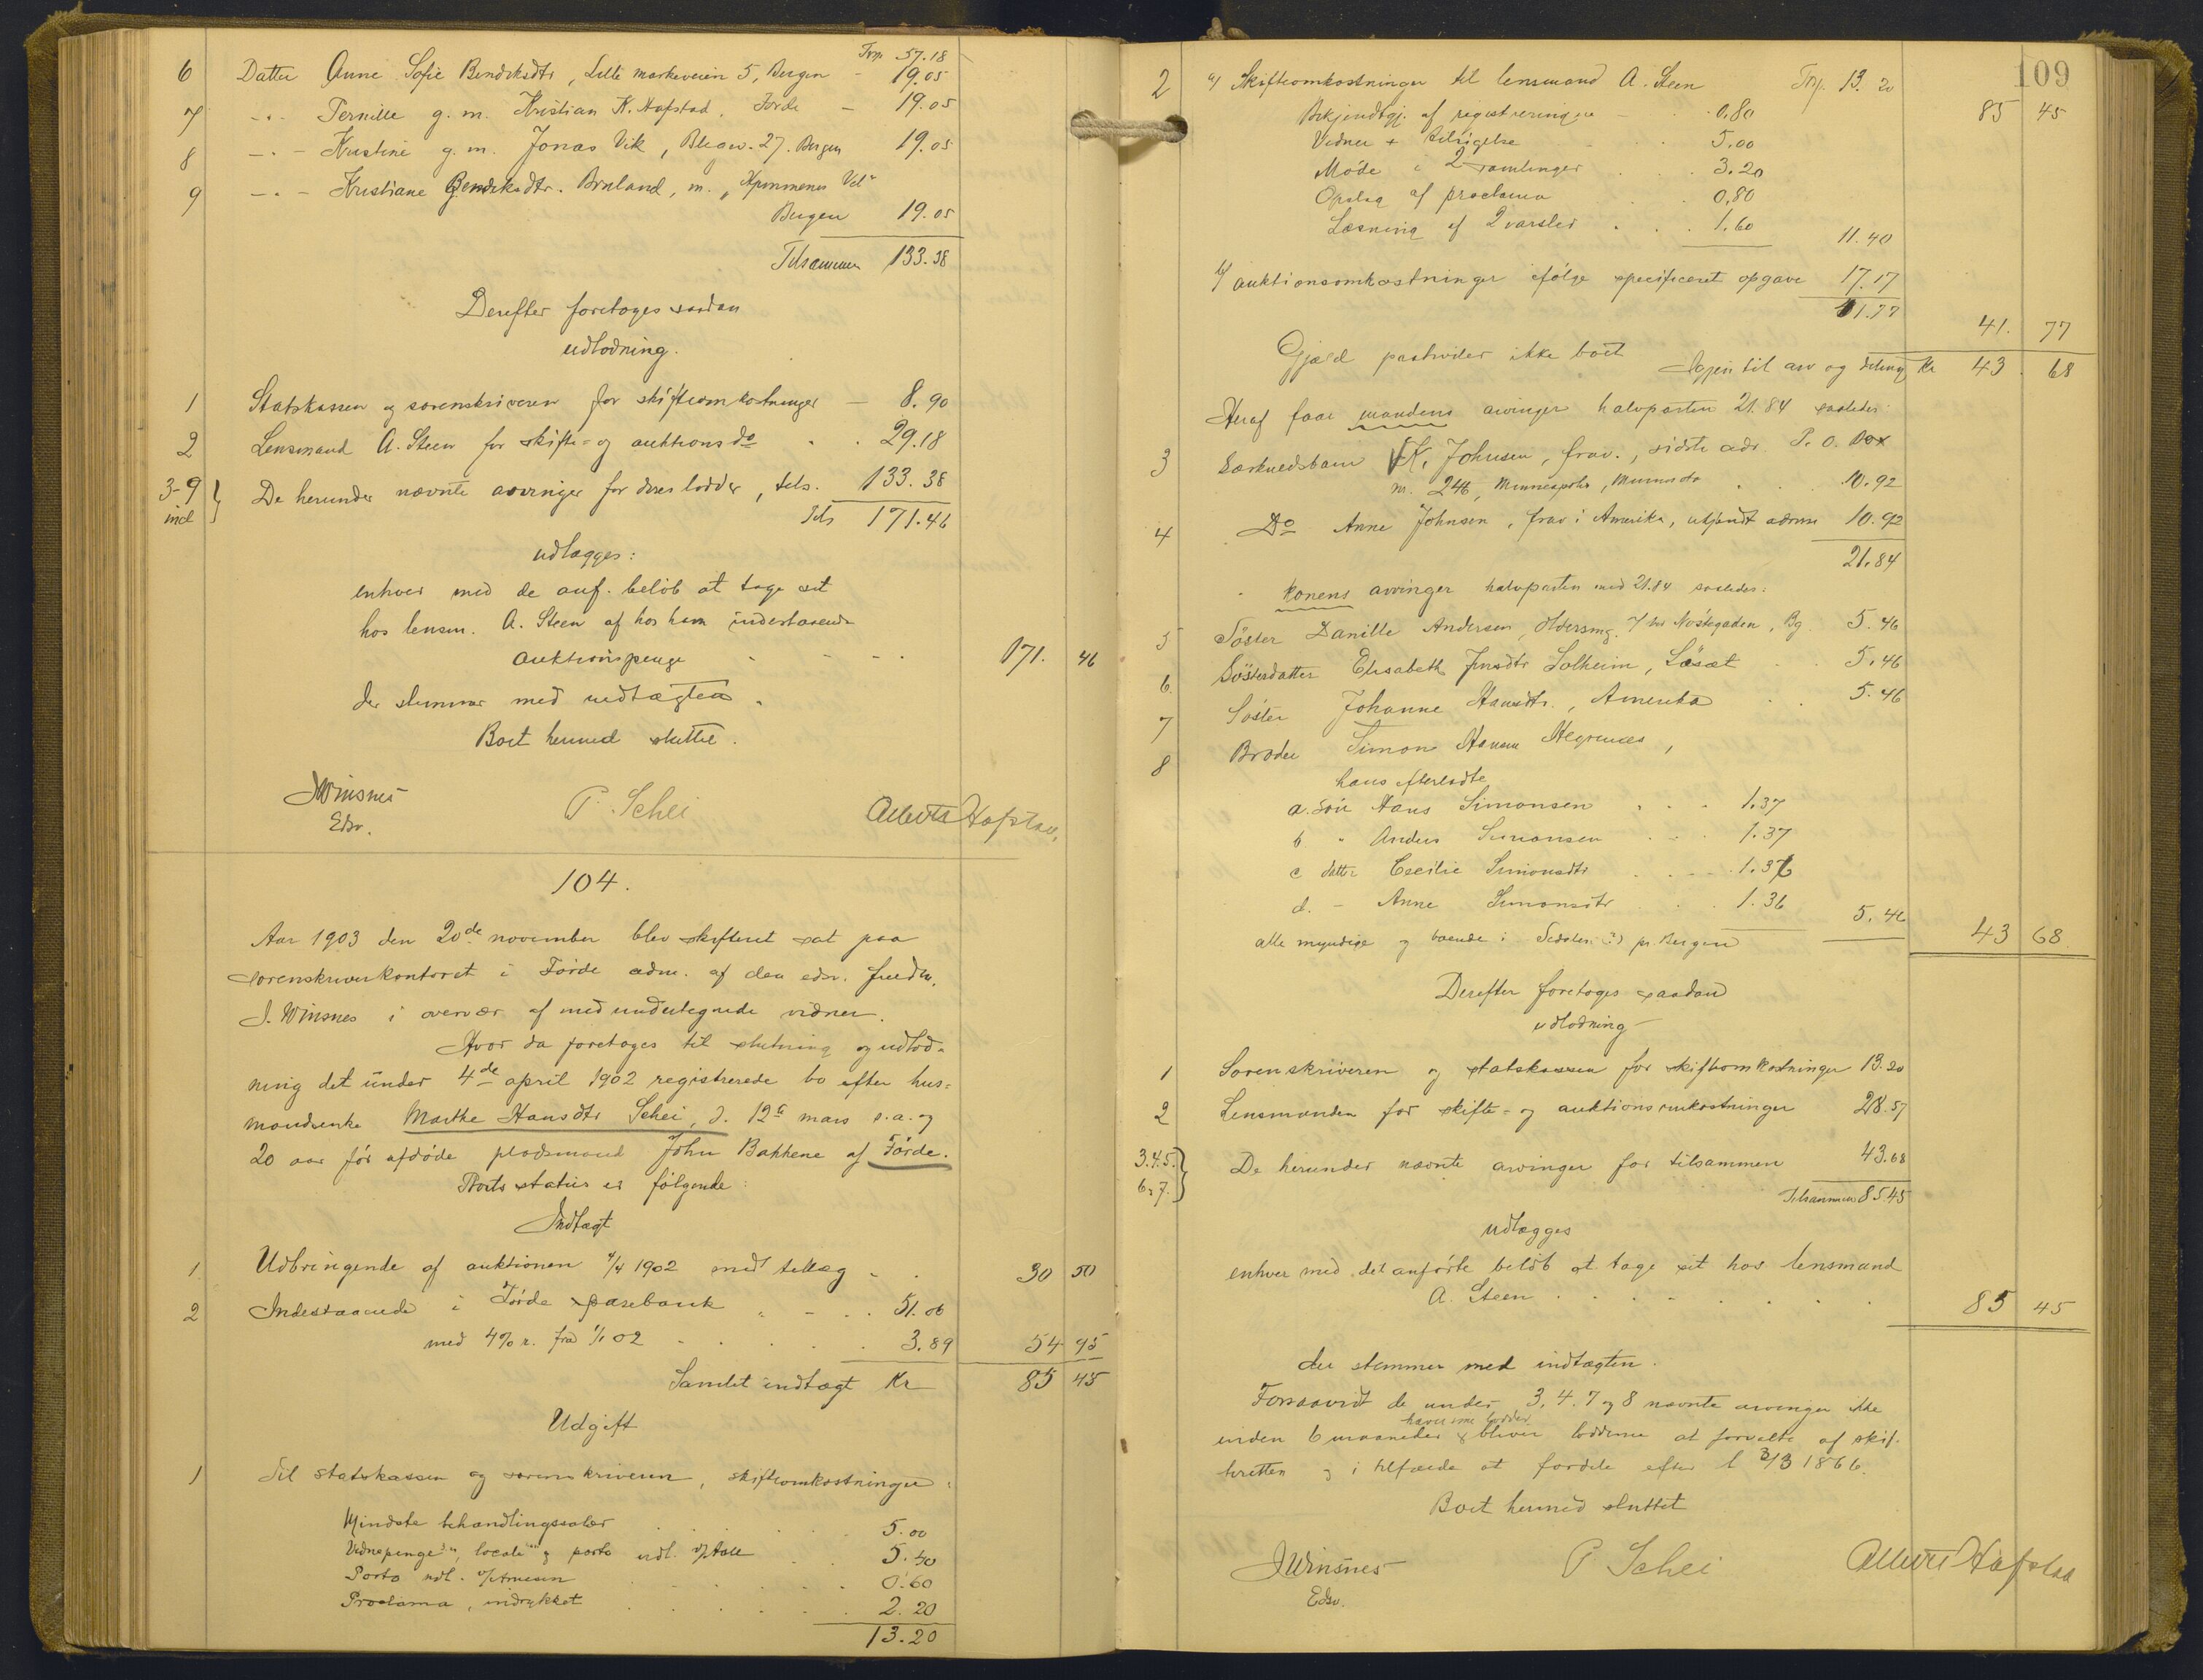 Trp. 57.18
6 Datter Anne Sofie Bendiksdtr, Lille markeveien 5, Bergen - 19.05
7 -"- Pernille g. m. Kristian K. Hafstad, Förde - 19.05
8 -"- Kristine g. m. Jonas Vik, 27. Bergen 19.05
9 -"- Kristiane Bendiksdtr. Bruland, m. "Hjemmenes Vel"
Bergen 19.05
Tilsammen 133.38
Derefter foretoges saadan
udlodning.
1 Statskassen og sorenskriveren for skifteomkostninger - 8.90
2 Lensmand A. Steen for skifte- og auktions do . . 29.18
3-9 incl } De herunder nævnte arvinger for deres lodder, tils. 133.38
Tils 171.46
udlægges:
enhver med de anf. belöb at tage sit
hos lensm. A. Steen af hos ham indestaaende
auktionspenge - - - - 171. 46
der stemmer med indtægten.
Boet hermed sluttet.
JWinsnes P. Schei Albert Hafstad,
Edsv.
104.
Aar 1903 den 20de november blev skifteret sat paa
sorenskriverkontoret i Förde adm. af den edsv. fuldm.
J. Winsnes i overvær af medundertegnede vidner.
Hvor da foretoges til slutning og udlod-
ning det under 4de april 1902 registrerede bo efter hus=
mandsenke Marthe Hansdtr Schei, d. 12te mars s.a. og
20 aar för afdöde pladsmand John Bakkene af Förde.
Boets status er fölgende:
Indtægt
1. Udbringende af auktionen 4/4 1902 med tillæg - . 30 50
2 Indestaaende i Förde sparebank - - . 51.06
med 4% r. fra 1/1 02 - . . . . 3.89 54 95
Samlet indtægt Kr 85 45
Udgift
1 Til statskassen og sorenskriveren, skifteomkostninger:
Mindste behandlingssalær . . . 5.00
Vidnepenge, locale og porto udl. 5.40
Porto udl. . . . 0.60
Proclama, indrykket . . . 2.20
13.20
109
2 a/ Skifteomkostninger til lensmand A. Steen Trp. 13.20 85 45
Bekjendtgj. af registreringen - . . 0,80
Vidner + tilsigelse - . . 5.00
Möde i 2 samlinger . . . 3.20
Opslag af proclama . . 0,80
Læsning af 2 varsler . . . 1.60 11.40
b/ auktionsomkostninger ifölge specificeret opgave 17.17
41.77 41. 77
Gjæld paahviler ikke boet
Igjen til arv og deling Kr 43. 68
Heraf faar mandens arvinger halvparten 21.84 saaledes:
3 Særkuldsbarn K. Johnsen, frav., sidste adr. P. O. Box
nr. 246, Minneapolis, Minnesota . . . 10.92
4 Do Anne Johnsen, frav i Amerika, ukjendt adresse 10.92
21.84
konens arvinger halvparten med 21.84 saaledes:
5 Söster Danille Andersen, Oldersmg. 7 ved Nöstegaden, Bg. 5.46
6. Sösterdatter Elisabeth Jensdtr Solheim, . . 5.46
7 Söster Johanne Hansdtr., Amerika . . 5.46
8 Broder Simon Hansen Hegrenæs,
hans efterladte
a. Sön Hans Simonsen . . . 1.37
b " Anders Simonsen . . . 1.37
c datter Cecilie Simonsdtr . . . 1.36
d. - Anne Simonsdtr . . . 1.36 5.46 43 68
alle myndige og boende i (?) pr. Bergen
Derefter foretoges saadan
udlodning
1 Sorenskriveren og statskassen for skifteomkostninger 13.20
2 Lensmanden for skifte- og auktionsomkostninger 28.57
3.4.5. 6, 7. } De herunder nævnte arvinger for tilsammen 43.68
Tilsammen 85.45
udlægges
enhver med det anförte belöb at tage sit hos lensmand
A. Steen . . . - . . . . 85 45
der stemmer med indtægten.
Forsaavidt de under 3, 4. 7 og 8 nævnte arvinger ikke
hæver sine lodder
inden 6 maaneder bliver lodderne at forvalte af skif-
teretten og i tilfælde at fordele efter l 3/3 1866.
Boet hermed sluttet
JWinsnes P Schei Albert Hafstad
Edsv.